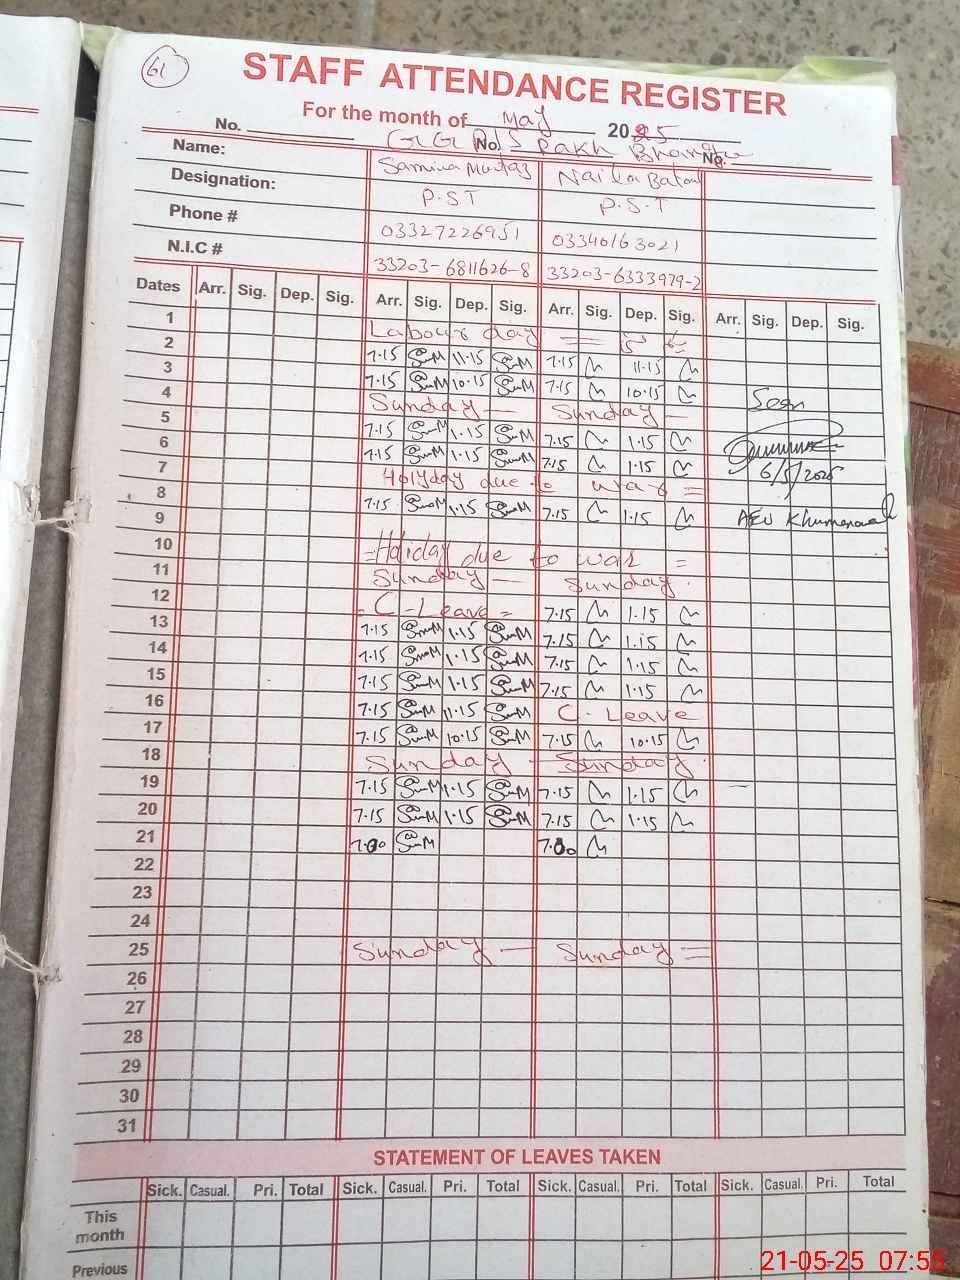 61
STAFF ATTENDANCE REGISTER
For the month of May 2025
No. No. No.
Name: Samina Mumtaz Naila Batool
Designation: P.ST P.S.T
Phone # 03327226951 03340163021
N.I.C # 33203-6811626-8 33203-6333979-2
Dates Arr. Sig. Dep. Sig. Arr. Sig. Dep. Sig. Arr. Sig. Dep. Sig. Arr. Sig. Dep. Sig.
1 Labour day
2 7.15 11.15 7.15 11.15
3 7.15 10.15 7.15 10.15
4 Sunday — Sunday — Seen
5 7.15 1.15 7.15 1.15
6 7.15 1.15 7.15 1.15 6/5/2025
7 Holyday due to war =
8 7.15 1.15 7.15 1.15 AEO
9
10 = Holiday due to war =
11 Sunday — Sunday.
12 - C - Leave = 7.15 1.15
13 7.15 1.15 7.15 1.15
14 7.15 1.15 7.15 1.15
15 7.15 1.15 7.15 1.15
16 7.15 11.15 C. Leave
17 7.15 10.15 7.15 10.15
18 Sunday — Sunday.
19 7.15 1.15 7.15 1.15
20 7.15 1.15 7.15 1.15
21 7.00 7.00
22
23
24
25 Sunday — Sunday =
26
27
28
29
30
31
STATEMENT OF LEAVES TAKEN
Sick. Casual. Pri. Total Sick. Casual. Pri. Total Sick. Casual. Pri. Total Sick. Casual. Pri. Total
This month
Previous
21-05-25 07:55